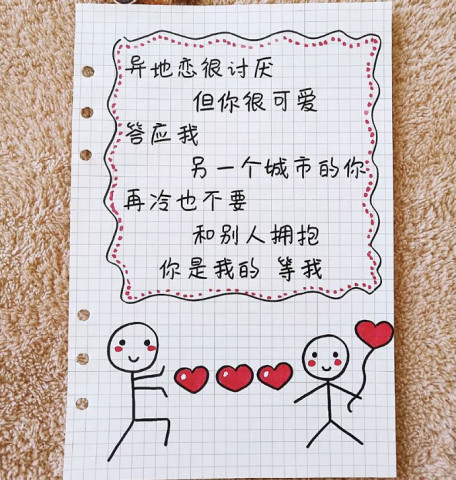 异地恋很讨厌
但你很可爱
答应我
另一个城市的你
再冷也不要
和别人拥抱
你是我的 等我